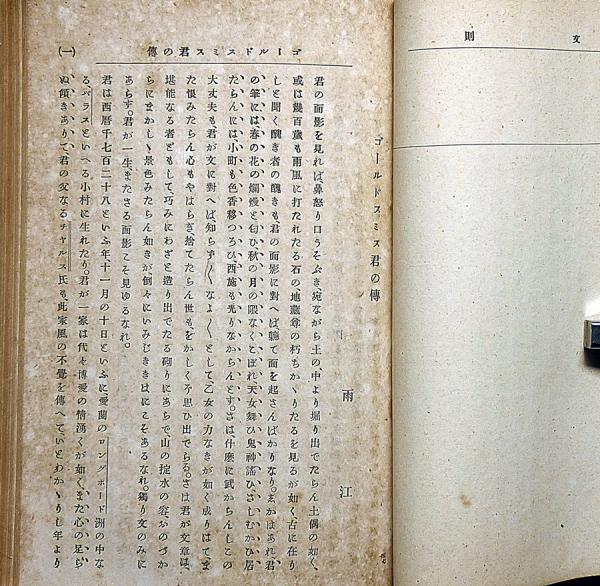 文則
ゴールドスミス君の傳
(一)
ゴールドスミス君の傳
雨江
君の面影を見れば、鼻怒り口うそぶき宛ながら土の中より堀り出でたらん土偶の如く、
或は幾百歳も雨風に打たれたる石の地蔵尊の朽ちかゝりたるを見るが如く、古に在り
しと聞く醜き者の醜きも君の面影に對へば聽て面を起さんばかりなり。志かはあれ、君
の筆には、春の花の爛熳と匂ひ秋の月の隈なくとぼれ、天女舞ひ鬼神謠ひ、さしむかひ居
たらんには小町も色香移つろひ、西施も光りなからんとす。さは什麽に武からんしこの
大丈夫も君が文に對へば、知らず〳〵なよ〳〵として乙女の力なきが如く成りはて、ま
た恨みたらん心もやはらぎ、捨てたらん世もをかしく予思ひ出でらる。さは君が文章は、
堪能なる者どもして、巧みにわざと造り出でたる砌りにあらで、山の掟水の容おのづか
らにまかしゝ景色みたらん如きが倒々にいみじききはにこそあるなれ。獨り文のみに
あらず。君が一生、またさる面影こそ見ゆるなれ。
君は西暦千七百二十八といふ年十一月の十日といふに、愛蘭のロングボード洲の中な
る、パラスといへる小村に生れたり。君が一家は代々博愛の情湧くが如く、また心の足ら
ぬ傾きありて、君の父なるチャルス氏も此家風の不覺を傳へて、いとわかゝりし年より